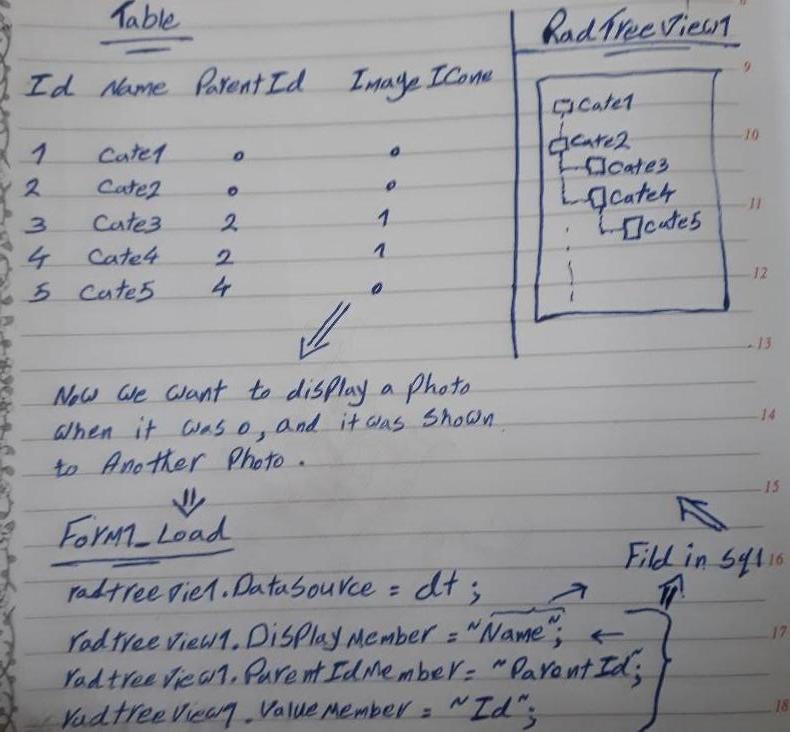 Table
Id Name ParentId Image ICone
1 Cate1 0 0
2 Cate2 0 0
3 Cate3 2 1
4 Cate4 2 1
5 Cate5 4 0
RadTreeView1
Cate1
Cate2
Cate3
Cate4
Cate5
9
10
11
12
13
14
15
16
17
18
Now we want to display a Photo
when it was 0, and it was shown
to Another Photo.
Form1_Load
Fild in sql
radtreevie1.DataSource = dt;
radtreeview1.DisplayMember = "Name";
radtreeview1.ParentIdMember = "ParentId";
radtreeview1.ValueMember = "Id";